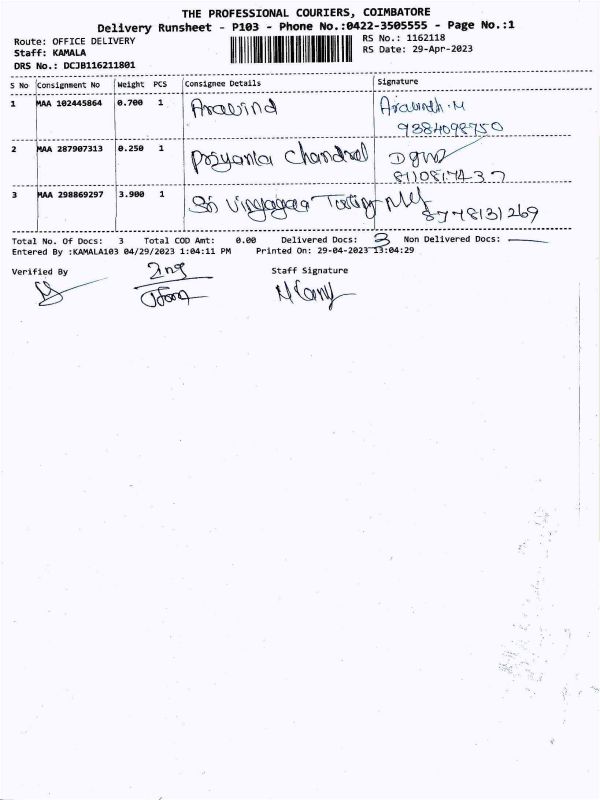 THE PROFESSIONAL COURIERS, COIMBATORE
Delivery Runsheet - P103 - Phone No.:0422-3505555 - Page No.:1
Route: OFFICE DELIVERY RS No.: 1162118
Staff: KAMALA RS Date: 29-Apr-2023
DRS No.: DCJB116211801
S No Consignment No Weight PCS Consignee Details Signature
1 MAA 102445864 0.700 1 Aravind Aravindh.M
9384098750
2 MAA 287907313 0.250 1 Priyanka Chandral
3 MAA 298869297 3.900 1 Sri Vinayagaa
8778131269
Total No. Of Docs: 3 Total COD Amt: 0.00 Delivered Docs: 3 Non Delivered Docs:
Entered By :KAMALA103 04/29/2023 1:04:11 PM Printed On: 29-04-2023 13:04:29
Verified By Staff Signature